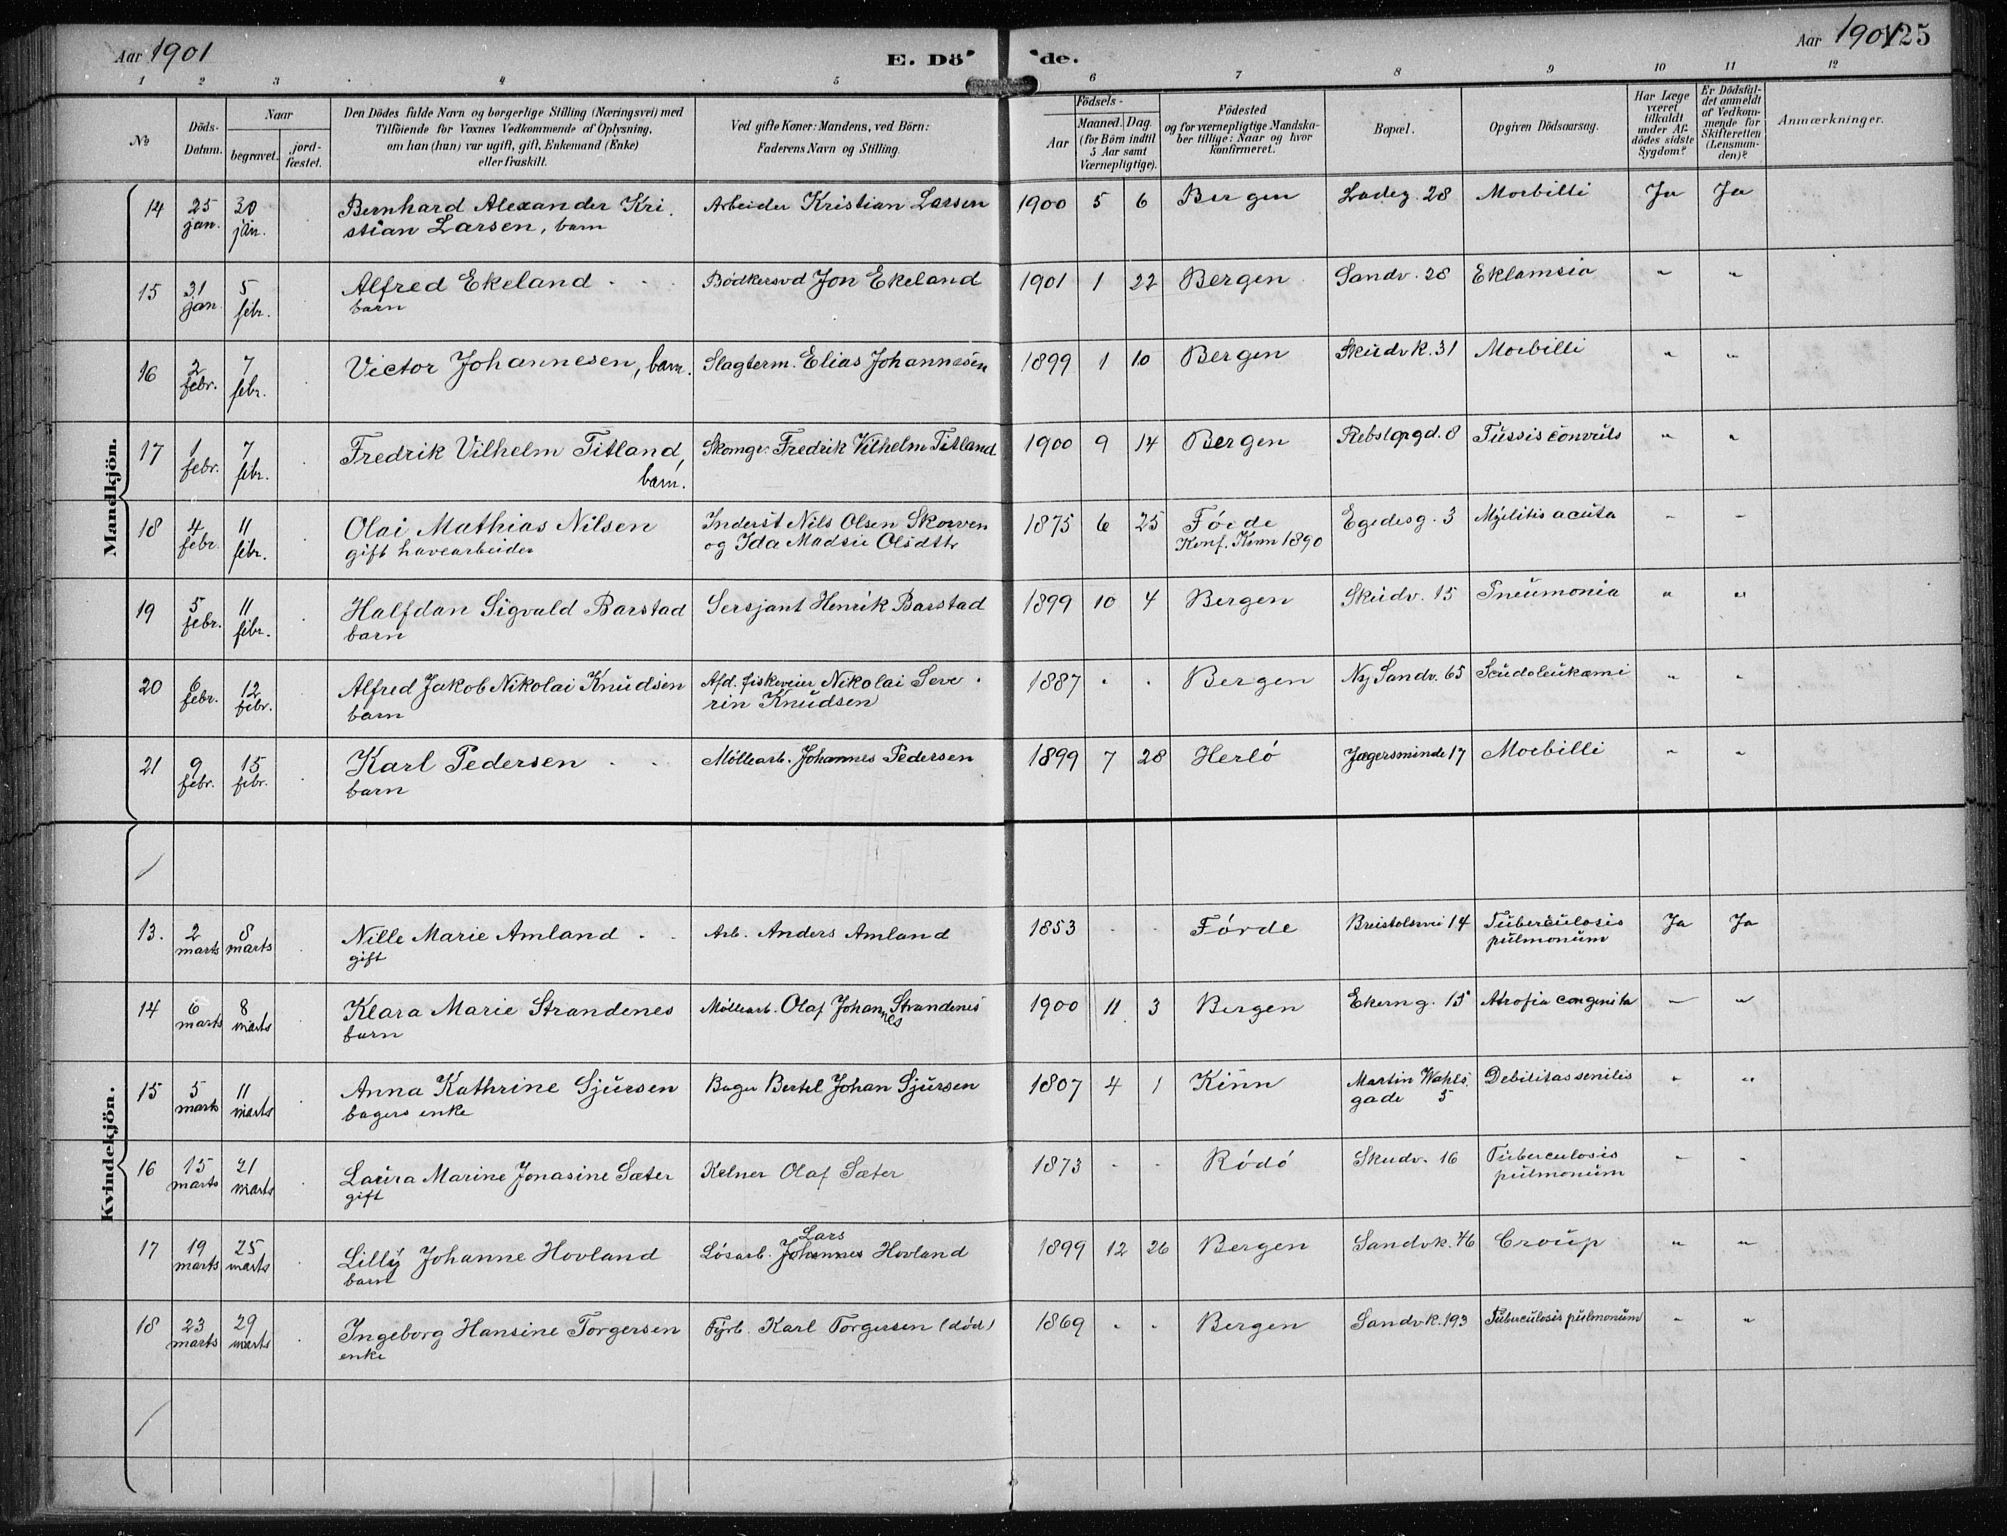 Aar 1901 E. Dö de. Aar 1901 125
1 2 3 4 5 6 7 8 9 10 11 12
No Döds-Datum. Naar begravet. jord-fæstet. Den Dödes fulde Navn og borgerlige Stilling (Næringsvei) med Tilföiende for Voxnes Vedkommende af Oplysning, om han (hun) var ugift, gift, Enkemand (Enke) eller fraskilt. Ved gifte Koner: Mandens, ved Börn: Faderens Navn og Stilling. Födsels- Aar Maaned. Dag. (for Börn indtil 5 Aar samt Værnepligtige). Födested og for værnepligtige Mandskaber tillige: Naar og hvor konfirmeret. Bopæl. Opgiven Dödsaarsag. Har Læge været tilkaldt under Afdödes sidste Sygdom? Er Dödsfaldet anmeldt af Vedkommende for Skifteretten (Lensmanden)? Anmærkninger.
Mandkjön.
14 25 jan. 30 jan. Bernhard Alexander Kristian Larsen, barn Arbeider Kristian Larsen 1900 5 6 Bergen Ladeg. 28 Morbilli Ja Ja
15 31 jan. 5 febr. Alfred Ekeland barn Bødkersvd Jon Ekeland 1901 1 22 Bergen Sandv. 28 Eklamsia " "
16 2 febr. 7 febr. Victor Johannesen, barn. Slagterm. Elias Johannesen 1899 1 10 Bergen Skudvk. 31 Morbilli " "
17 1 febr. 7 febr. Fredrik Vilhelm Titland, barn. Skomgr. Fredrik Vilhelm Titland 1900 9 14 Bergen Rebslgrgd. 8 Tussis convuls " "
18 4 febr. 11 febr. Olai Mathias Nilsen gift havearbeider Inderst Nils Olsen Skorven og Ida Madsie Olsdtr 1875 6 25 Førde Konf. Kinn 1890 Egedesg. 3 Myelitis acuta " "
19 5 febr. 11 febr. Halfdan Sigvald Barstad barn Sersjant Henrik Barstad 1899 10 4 Bergen Skudv. 15 Pneumonia " "
20 6 febr. 12 febr. Alfred Jakob Nikolai Knudsen barn Afd. fiskeveier Nikolai Severin Knudsen 1887 . . Bergen Ny Sandv. 65 Seudoleukæmi " "
21 9 febr. 15 febr. Karl Pedersen barn Møllearb. Johannes Pedersen 1899 7 28 Herlø Jægersminde 17 Morbilli " "
Kvindekjön.
13. 2 marts 8 marts Nille Marie Amland gift Arb. Anders Amland 1853 . . Førde Breistolsvei 14 Tuberculosis pulmonum Ja Ja
14 6 marts 8 marts Klara Marie Strandenes barn Møllearb. Olaf Johannes Strandenes 1900 11 3 Bergen Ekerng. 15 Atrofia congenita " "
15 5 marts 11 marts Anna Kathrine Sjursen bagers enke Bager Bertel Johan Sjursen 1807 4 1 Kinn Martin Wahls gade 5 Debilitas senilis " "
16 15 marts 21 marts Laura Marine Jonasine Sæter gift Kelner Olaf Sæter 1873 . . Rødø Skudv. 16 Tuberculosis pulmonum " "
17 19 marts 25 marts Lilly Johanne Hovland barn Løsarb. Lars Johannes Hovland 1899 12 26 Bergen Sandvk. 46 Croup " "
18 23 marts 29 marts Ingeborg Hansine Torgersen enke Fyrb. Karl Torgersen (død) 1869 . . Bergen Sandvk. 193 Tuberculosis pulmonum " "